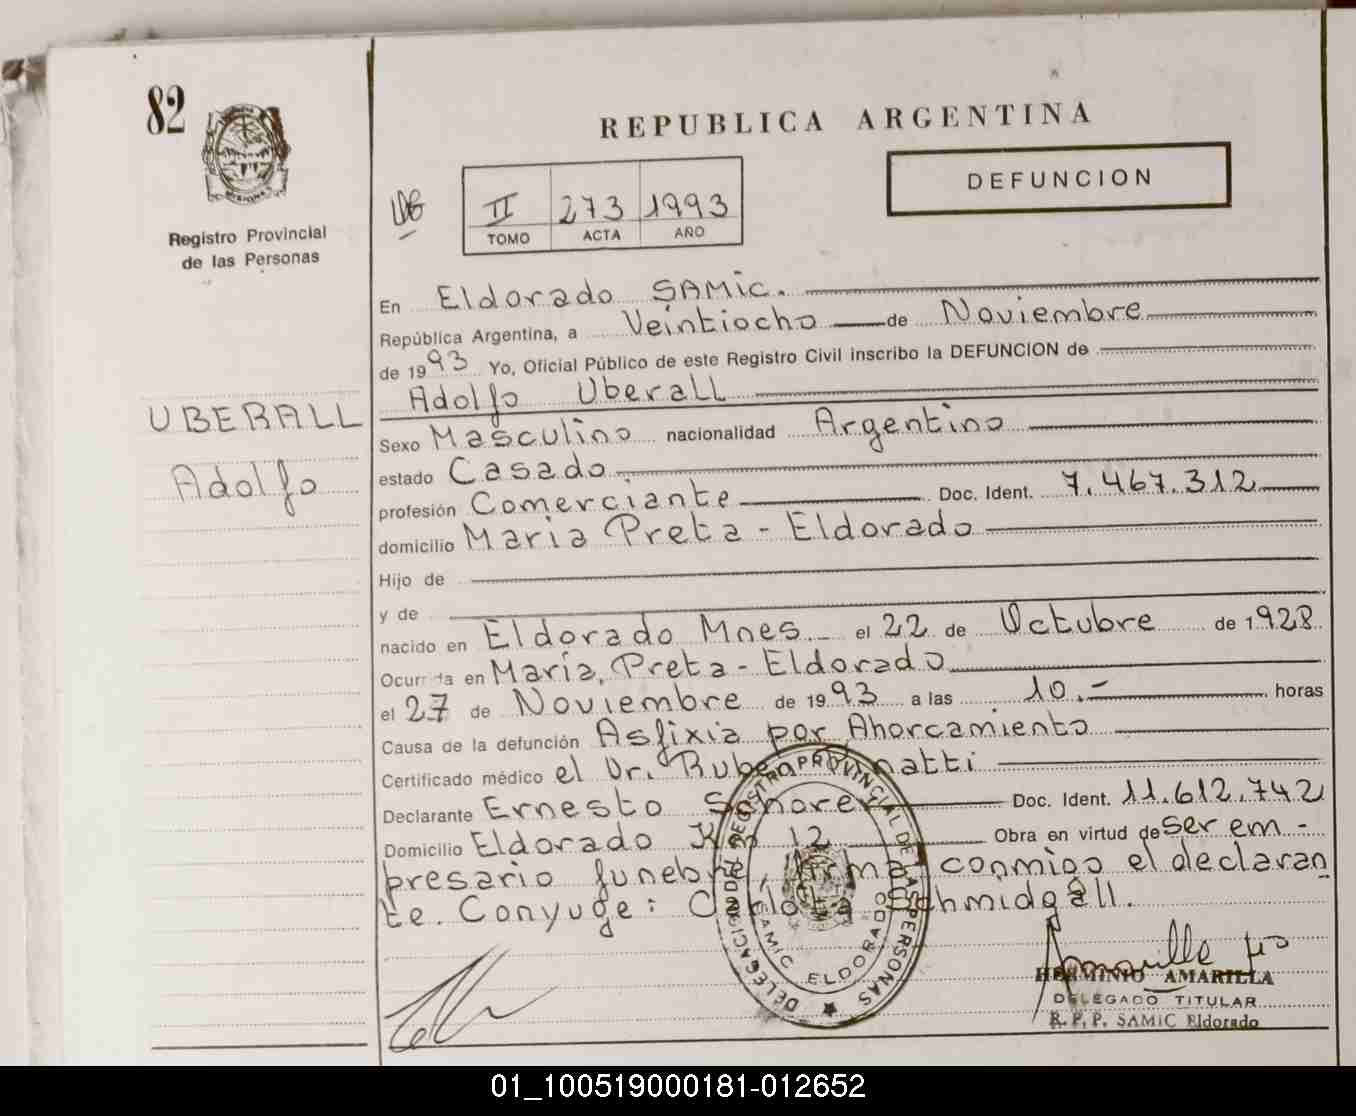 82
REPUBLICA ARGENTINA
DEFUNCION
II 273 1993
TOMO ACTA AÑO
Registro Provincial
de las Personas
En Eldorado SAMic.
República Argentina, a Veintiocho de Noviembre
de 1993 Yo, Oficial Público de este Registro Civil inscribo la DEFUNCION de
Adolfo Uberall
UBERALL
Adolfo
Sexo Masculino nacionalidad Argentino
estado Casado
profesión Comerciante Doc. Ident. 7.467.312
domicilio Maria Preta - Eldorado
Hijo de
y de
nacido en Eldorado Mnes el 22 de Octubre de 1.928
Ocurrida en María, Preta - Eldorado
el 27 de Noviembre de 1993 a las 10.- horas
Causa de la defunción Asfixia por Ahorcamiento
Certificado médico el Dr. Ruben
Declarante Ernesto Doc. Ident. 11.612.742
Domicilio Eldorado Km 12 Obra en virtud de ser em-
presario funebre, firma conmigo el declaran
te. Conyuge: Carlota Schmidgall.
DELEGACION DEL REGISTRO PROVINCIAL DE LAS PERSONAS
SAMIC ELDORADO
HERMINIO AMARILLA
DELEGADO TITULAR
R. P. P. SAMIC Eldorado
01_100519000181-012652